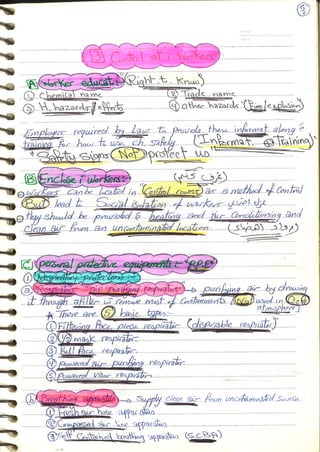 D Control at: Workers
A Worker education (Right to Know)
① Chemical name ② Trade name
③ H. hazards / effects ④ other hazards: (Fire / explosion
Employer required by Law to provide these informat along c̄
training for how to use ch. safely (Informat. ⊕ Training)
"Safety Signs Not protect us"
B Enclose : Workers:
Workers can be located in "Control rooms" as a method of control
But lead to Social isolation of workers
they should be provided c̄ heating and air conditioning and
clean air from an uncontaminated location.
C personal protective equipments :- "PPE"
① Respiratory protection :-
ⓐ Respirator air purifying respirator → purifying air by drawing
it through a filter w̄ remove most of Contaminants. Not used in O₂↓ atmosphere
* There are 5 basic types:-
① Filtering face piece respirator (disposable respirator)
② 1/2 mask respirator.
③ Full face respirator.
④ powered air purifying respirator
⑤ powered visor respirator
ⓑ Breathing apparatus → Supply clean air from uncontaminated source.
① Fresh air hose apparatus
② Compressed air line apparatus
③ Self Contained breathing apparatus (S.C.B.A)